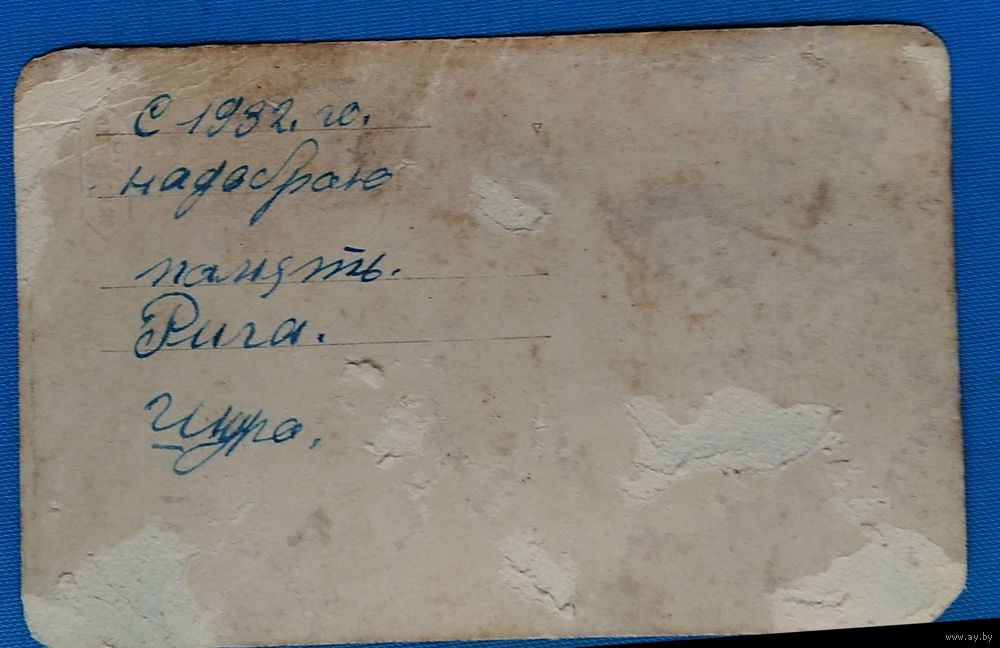 С 1932. го.
надобраю
память.
Рига.
www.ay.by